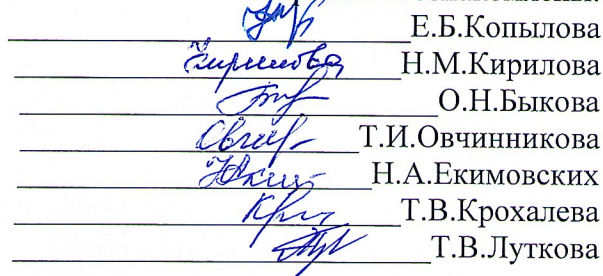 Е.Б.Копылова
Кирилова Н.М.Кирилова
О.Н.Быкова
Т.И.Овчинникова
Н.А.Екимовских
Т.В.Крохалева
Т.В.Луткова